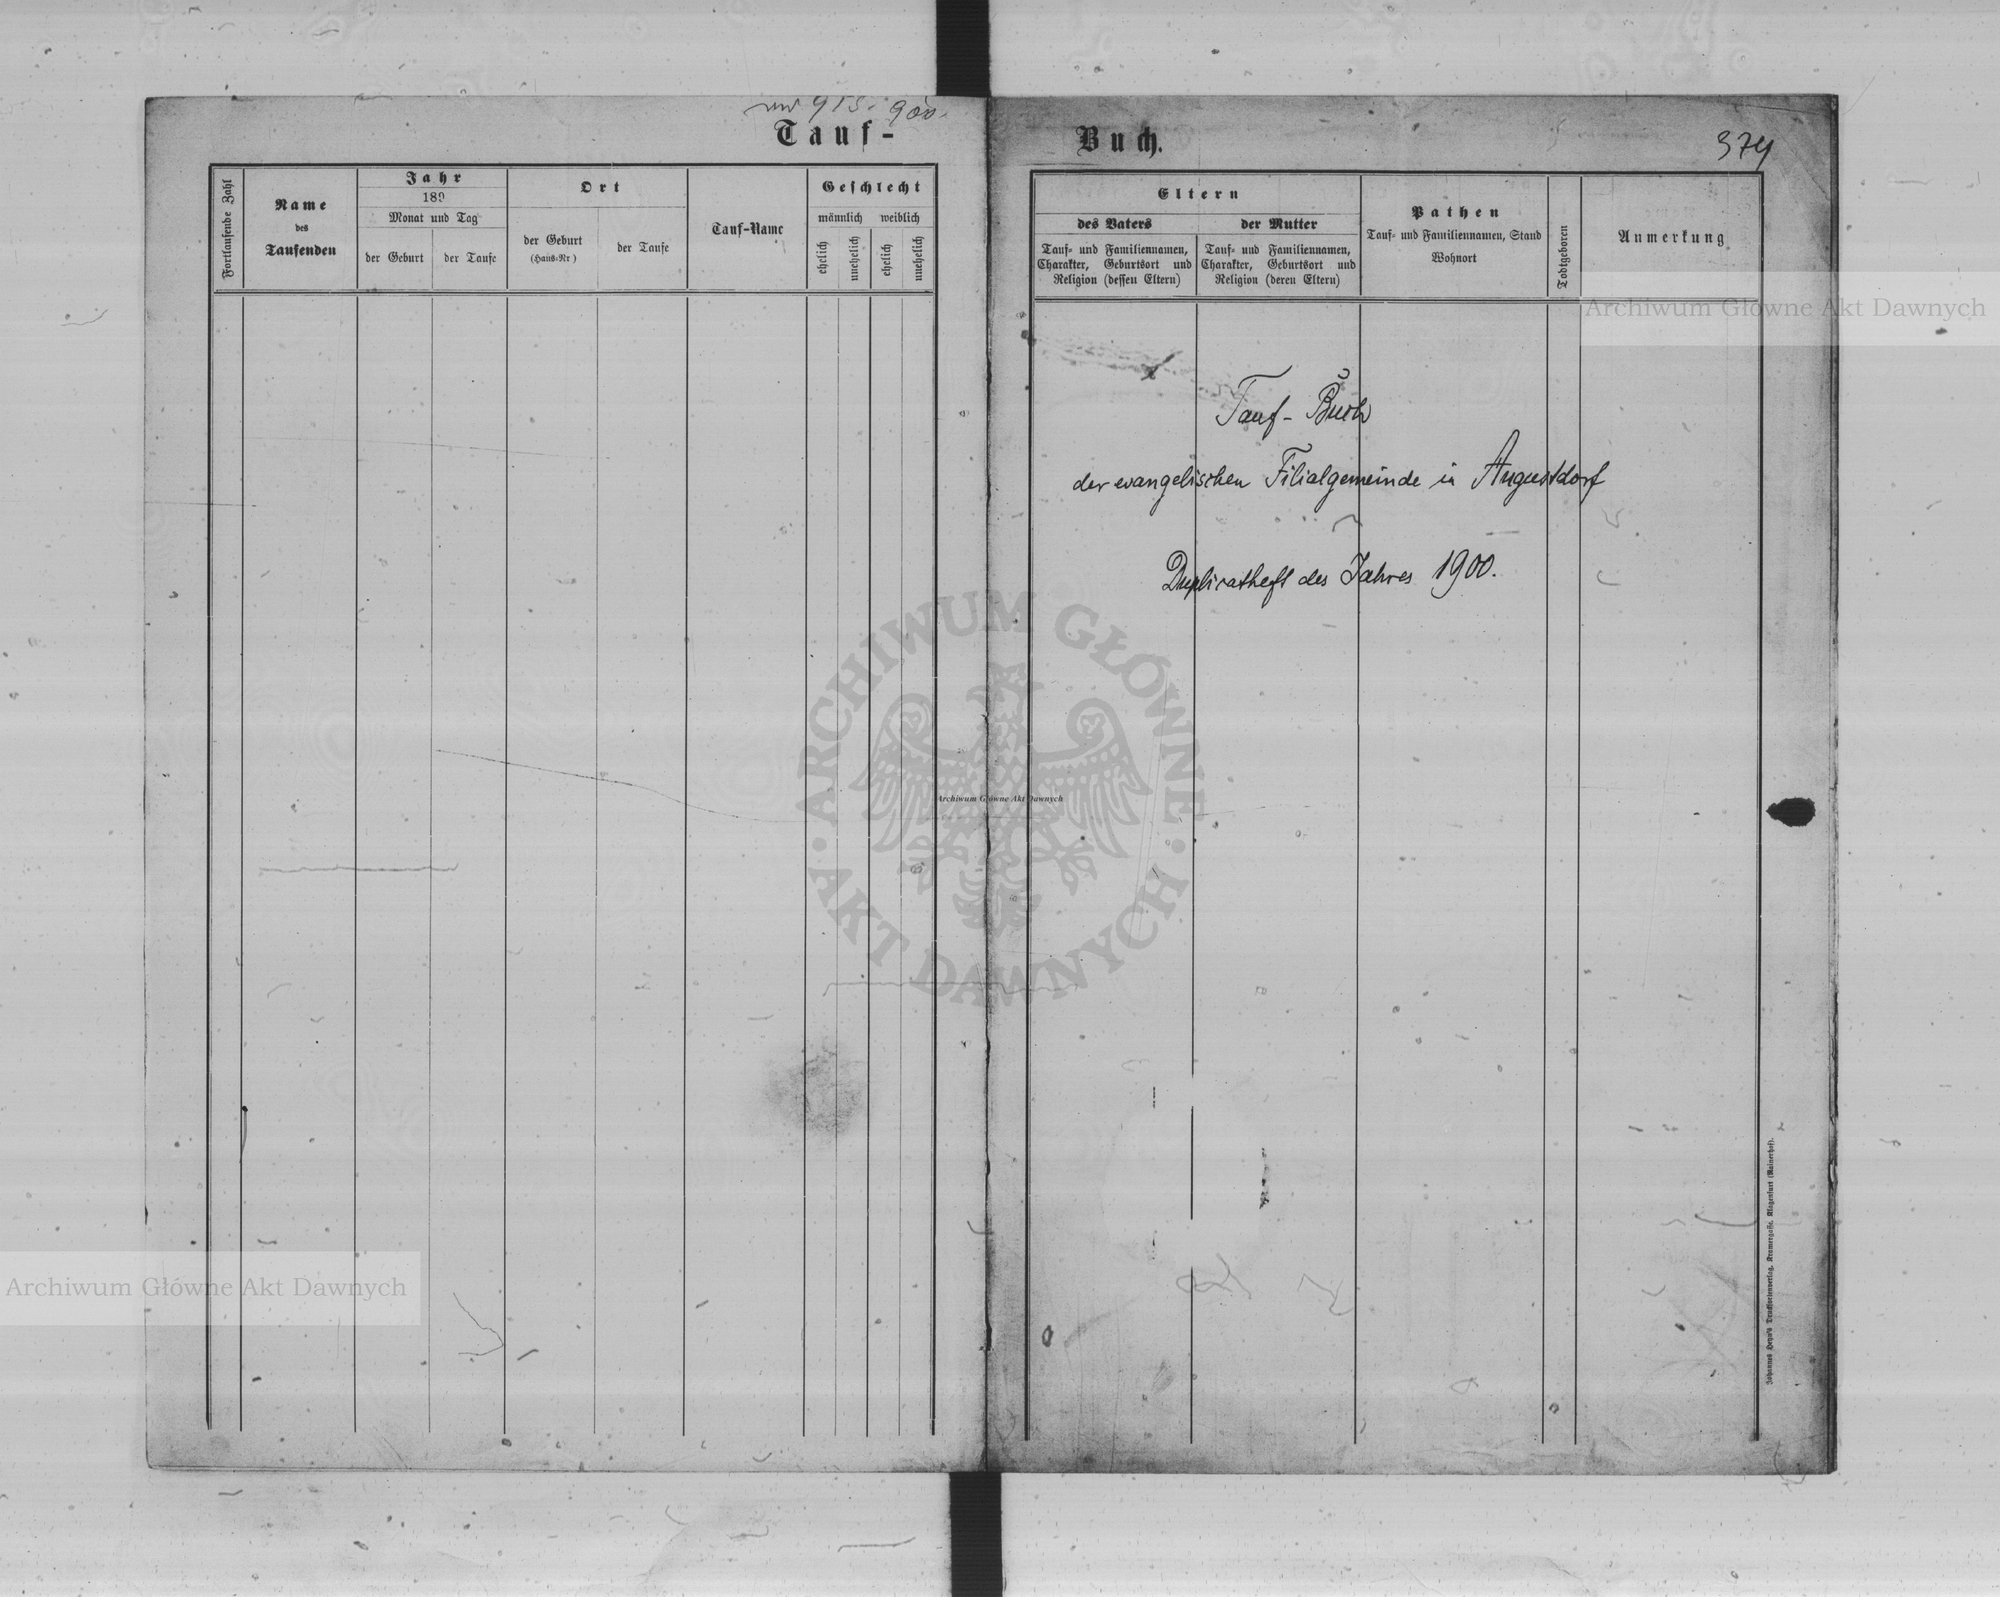 Tauf-
Buch.
374
Fortlaufende Zahl
Name
des
Taufenden
Jahr
189
Monat und Tag
der Geburt
der Taufe
Ort
der Geburt
(Haus-Nr)
der Taufe
Tauf-Name
Geschlecht
männlich
weiblich
ehelich
unehelich
ehelich
unehelich
Eltern
des Vaters
Tauf- und Familiennamen,
Charakter, Geburtsort und
Religion (dessen Eltern)
der Mutter
Tauf- und Familiennamen,
Charakter, Geburtsort und
Religion (deren Eltern)
Pathen
Tauf- und Familiennamen, Stand
Wohnort
Todtgeboren
Anmerkung
Archiwum Główne Akt Dawnych
Tauf- Buch
der evangelischen Filialgemeinde in Augustdorf
Duplicatheft des Jahres 1900.
ARCHIWUM GŁÓWNE
AKT DAWNYCH
Archiwum Główne Akt Dawnych
Archiwum Główne Akt Dawnych
Johannes Heyn's Drucksortenverlag, Kramergasse, Klagenfurt (Rainerhof).